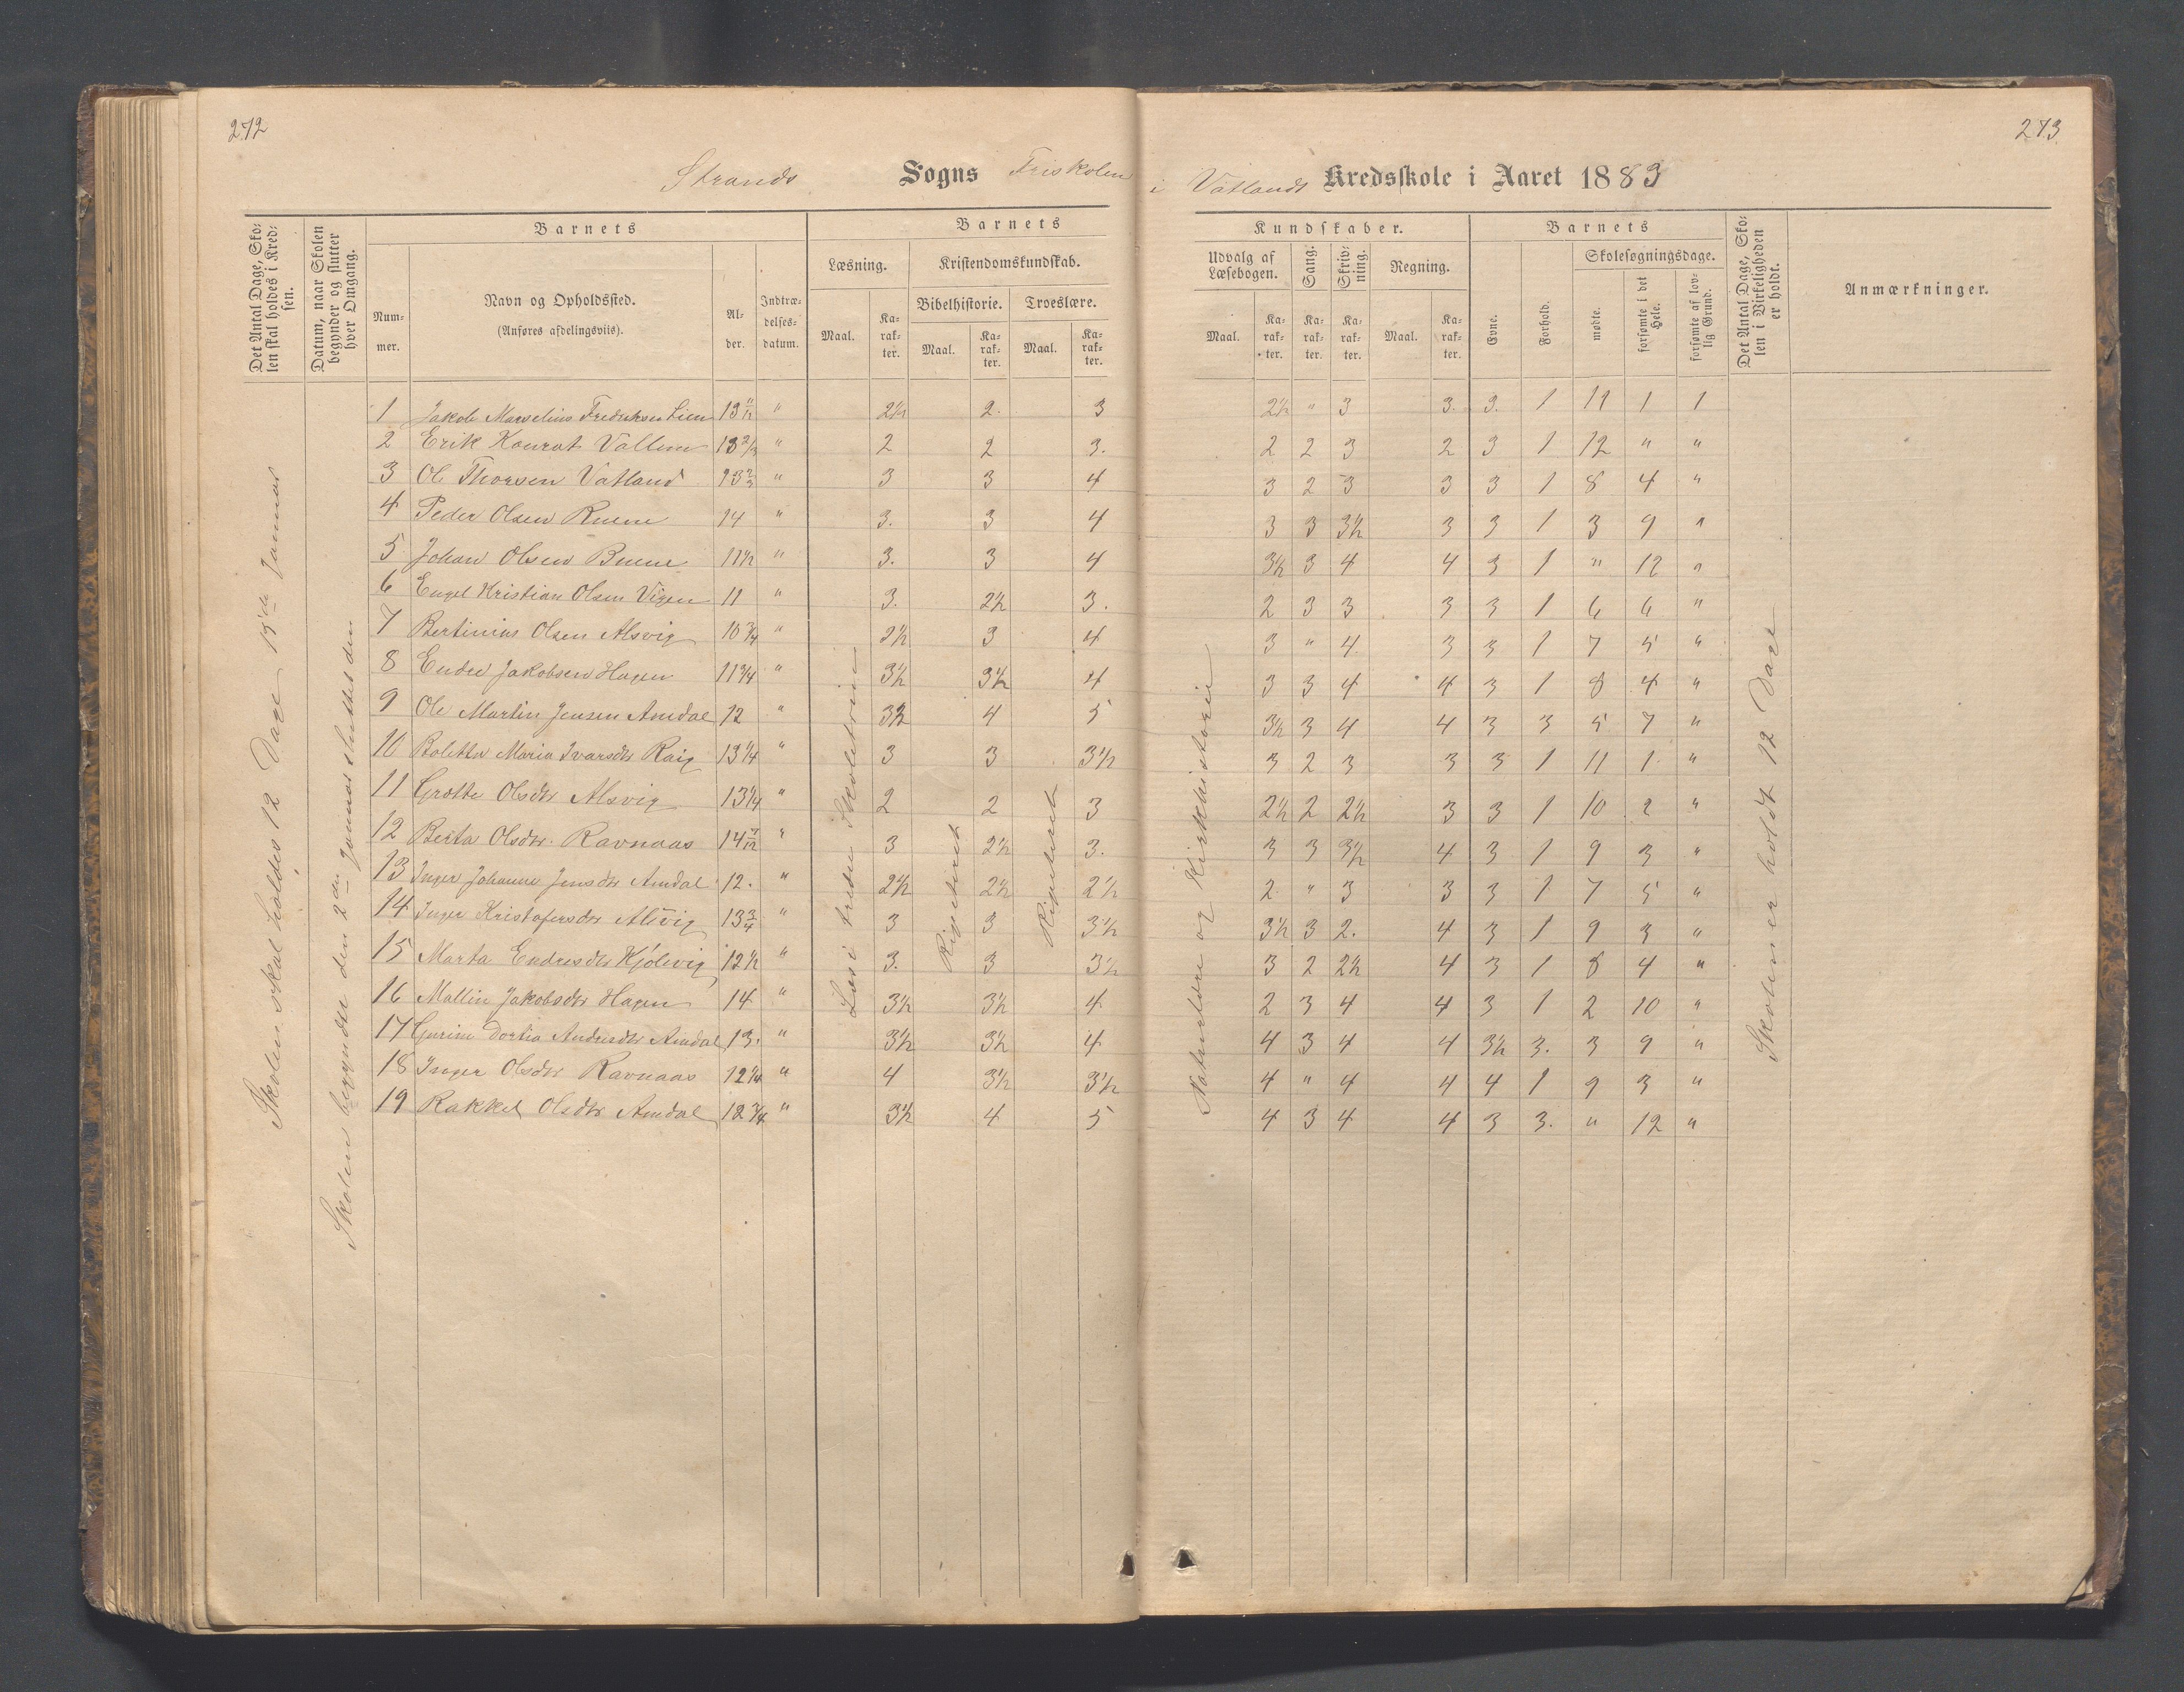 272
273
Strands Sogns Friskolen i Vatlands Kredsskole i Aaret 1883
Det Antal Dage, Skolen skal holdes i Kredsen.
Datum, naar Skolen begynder og slutter hver Omgang.
Barnets
Nummer.
Navn og Opholdssted.
(Anføres afdelingsviis).
Alder.
Indtrædelsesdatum.
Barnets
Læsning.
Kristendomskundskab.
Bibelhistorie.
Troeslære.
Maal.
Karakter.
Maal.
Karakter.
Maal.
Karakter.
Kundskaber.
Udvalg af Læsebogen.
Sang.
Skrivning.
Regning.
Maal.
Karakter.
Karakter.
Karakter.
Maal.
Karakter.
Barnets
Evne.
Forhold.
Skolesøgningsdage.
mødte.
forsømte i det Hele.
forsømte af lovlig Grund.
Det Antal Dage, Skolen i Virkeligheden er holdt.
Anmærkninger.
1 Jakob Marselius Fredriksen Lien 13 11/12 " 2½ 2. 3 2½ " 3 3. 3. 1 11 1 1
2 Erik Konrat Vallem 13 2/3 " 2 2 3. 2 2 3 2 3 1 12 " "
3 Ole Thorsen Vatland 13 2/3 " 3 3 4 3 2 3 3 3 1 8 4 "
4 Peder Olsen 14 " 3. 3 4 3 3 3½ 3 3 1 3 9 "
5 Johan Olsen 11½ " 3. 3 4 3½ 3 4 4 3 1 " 12 "
6 Engel Kristian Olsen Vigen 11 " 3. 2½ 3. 2 3 3 3 3 1 6 6 "
7 Bertinius Olsen Alsvig 10 3/4 " 2½ 3 4 3 " 4 3 3 1 7 5 "
8 Endre Jakobsen Hagen 11 3/4 " 3½ 3½ 4 3 3 4 4 3 1 8 4 "
9 Ole Martin Jensen Amdal 12 " 3½ 4 5 3½ 3 4 4 3 3 5 7 "
10 Boletta Maria Ivarsdtr Raig 13¼ " 3 3 3½ 3 2 3 3 3 1 11 1 "
11 Grothe Olsdtr Alsvig 13¼ " 2 2 3 2½ 2 2½ 3 3 1 10 2 "
12 Berta Olsdtr. Ravnaas 14 7/12 " 3 2½ 3. 3 3 3½ 4 3 1 9 3 "
13 Inger Johanne Jensdtr Amdal 12. " 2½ 2½ 2½ 2 " 3 3 3 1 7 5 "
14 Inger Kristofersdtr Alsvig 13 3/4 " 3 3 3½ 3½ 3 2. 4 3 1 9 3 "
15 Marta Endresdtr Kjølevig 12½ " 3. 3 3½ 3 2 2½ 4 3 1 8 4 "
16 Mallin Jakobsdtr Hagen 14 " 3½ 3½ 4 2 3 4 4 3 1 2 10 "
17 Gurine Dortia Andresdtr Amdal 13. " 3½ 3½ 4 4 3 4 4 3½ 3. 3 9 "
18 Inger Olsdtr Ravnaas 12¼ " 4 3½ 3½ 4 " 4 4 4 1 9 3 "
19 Rakkel Olsdtr Amdal 12 3/4 " 3½ 4 5 4 3 4 4 3 3. " 12 "
Skolen skal holdes 12 Dage
Skolen begyndte den 2den Januar sluttet den 15de Januar
Læs i tredie Skoletrin
Repeteret
Repeteret
Naturlære og Kirkehistorie
Skolen er holdt 12 Dage